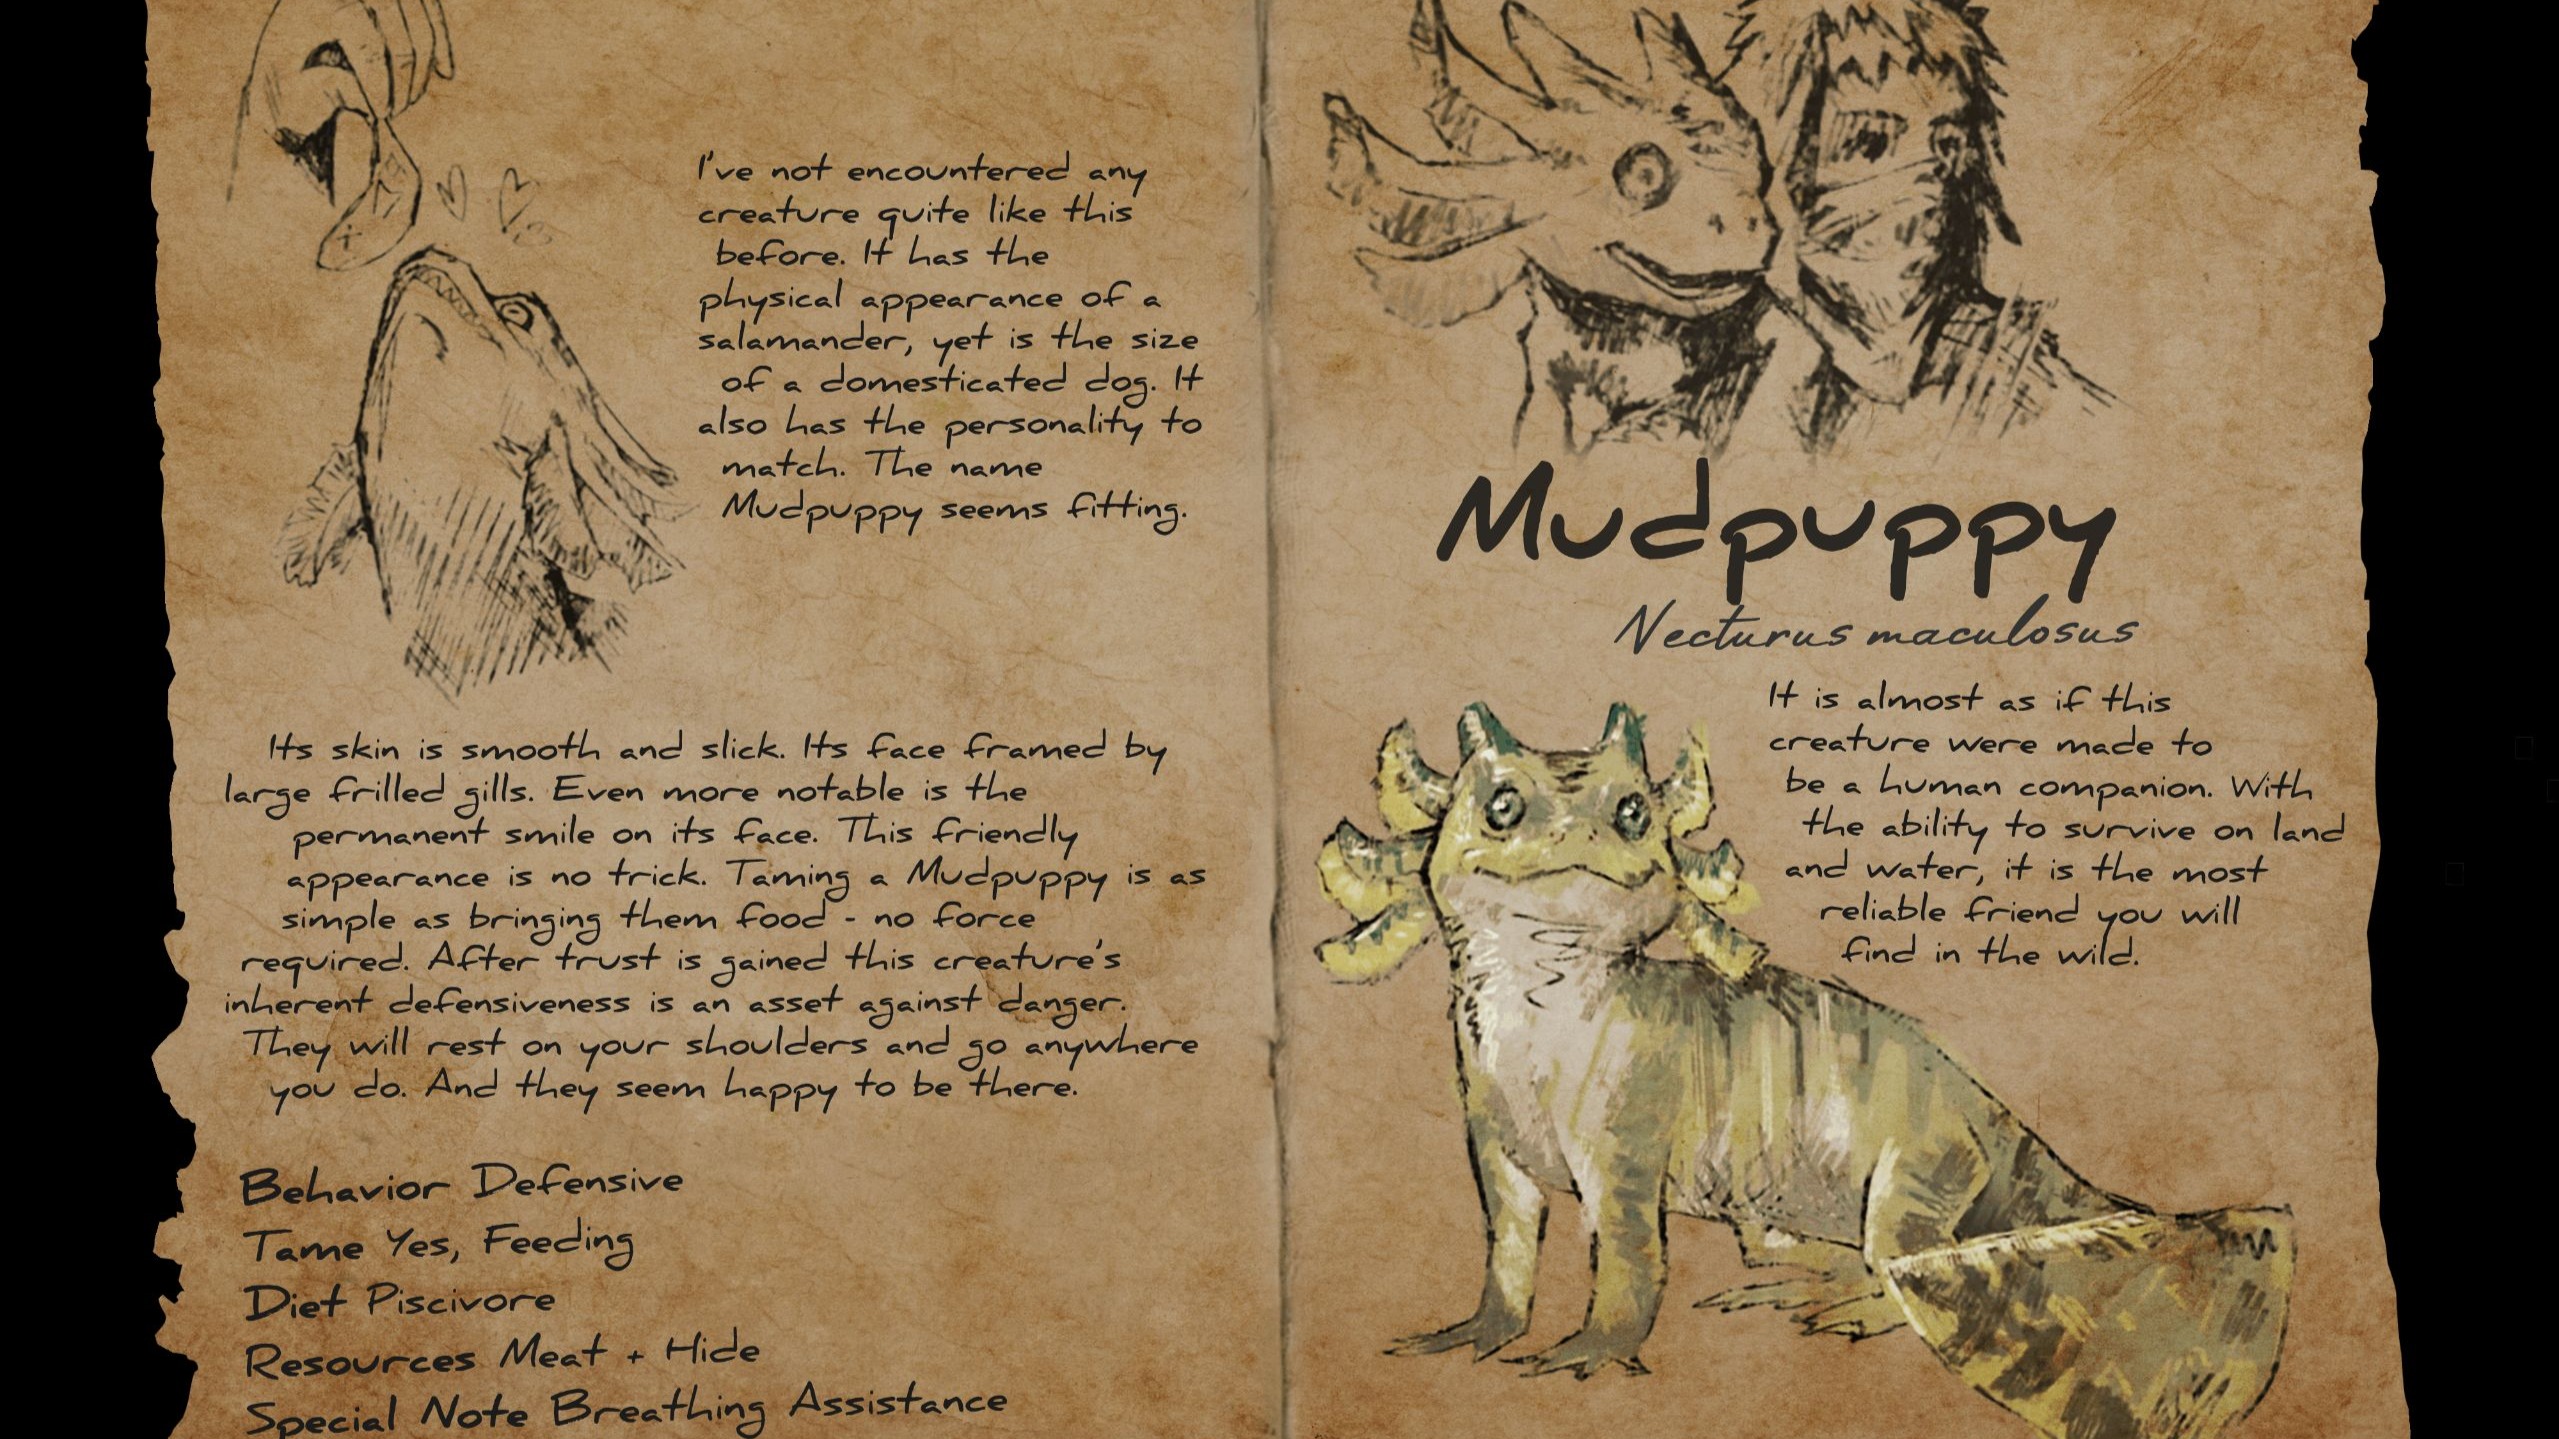 I've not encountered any
creature quite like this
before. It has the
physical appearance of a
salamander, yet is the size
of a domesticated dog. It
also has the personality to
match. The name
Mudpuppy seems fitting.
Its skin is smooth and slick. Its face framed by
large frilled gills. Even more notable is the
permanent smile on its face. This friendly
appearance is no trick. Taming a Mudpuppy is as
simple as bringing them food - no force
required. After trust is gained this creature's
inherent defensiveness is an asset against danger.
They will rest on your shoulders and go anywhere
you do. And they seem happy to be there.
Behavior Defensive
Tame Yes, Feeding
Diet Piscivore
Resources Meat + Hide
Special Note Breathing Assistance
Mudpuppy
Necturus maculosus
It is almost as if this
creature were made to
be a human companion. With
the ability to survive on land
and water, it is the most
reliable friend you will
find in the wild.